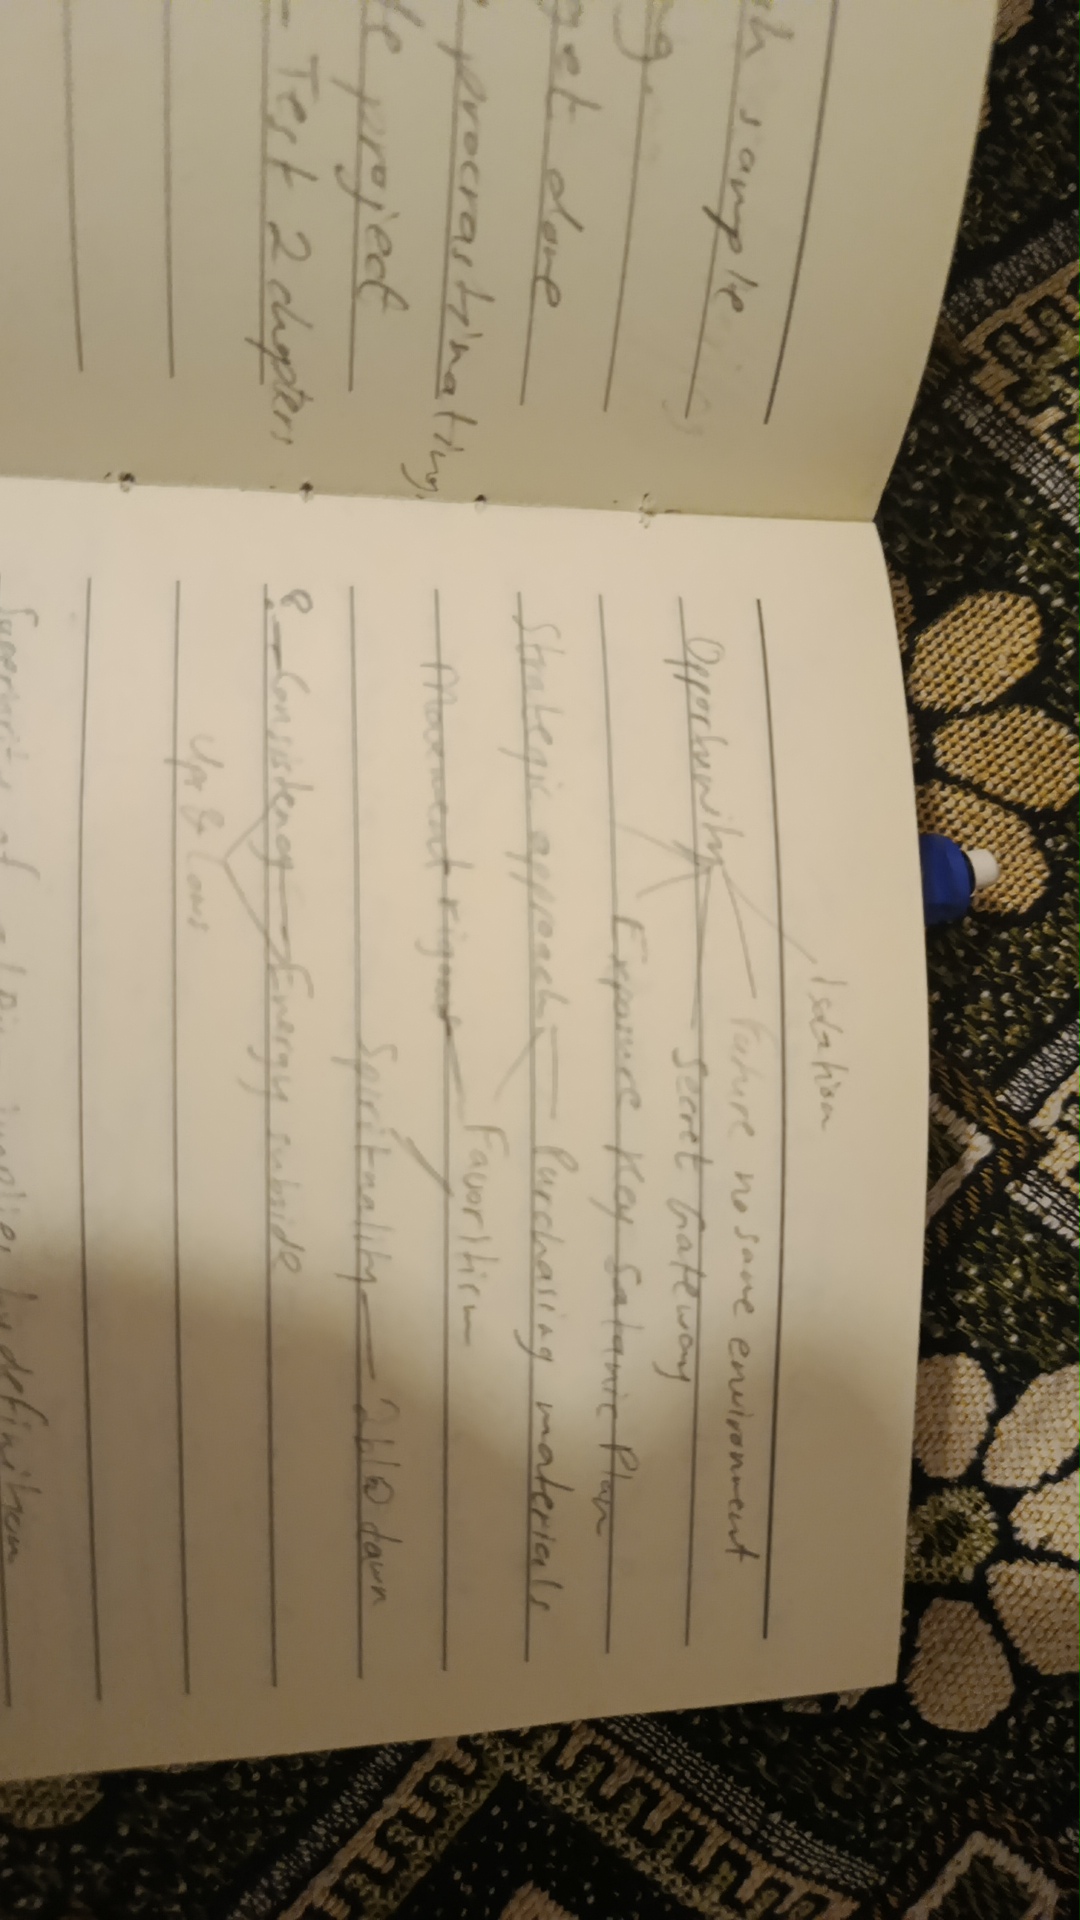 sample
get done
procrastinating,
project
- Test 2 chapters
Isolation
Future no same environment
Opportunity
secret Gateway
Exposure Key Satanic Plan
Strategic approach Purchasing materials
Movement rigour Favoritism
Spirituality 2610 dawn
8.- Consistency Energy subside
Ups & Lows
by definition